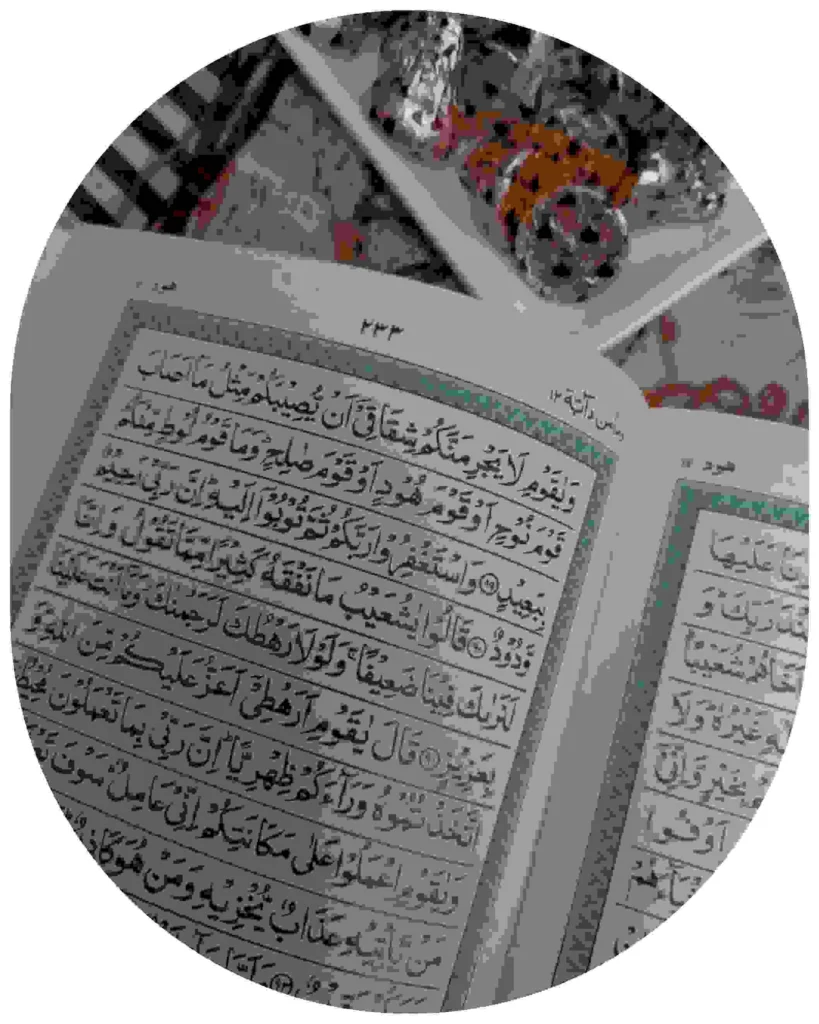 هود ١١
٢٣٣
ومامن دآبّة ١٢
وَيٰقَوْمِ لَا يَجْرِمَنَّكُمْ شِقَاقِيْٓ اَنْ يُّصِيْبَكُمْ مِّثْلُ مَآ اَصَابَ
قَوْمَ نُوْحٍ اَوْ قَوْمَ هُوْدٍ اَوْ قَوْمَ صٰلِحٍ ؕ وَمَا قَوْمُ لُوْطٍ مِّنْكُمْ
بِبَعِيْدٍ ۟ وَاسْتَغْفِرُوْا رَبَّكُمْ ثُمَّ تُوْبُوْٓا اِلَيْهِ ؕ اِنَّ رَبِّيْ رَحِيْمٌ
وَّدُوْدٌ ۟ قَالُوْا يٰشُعَيْبُ مَا نَفْقَهُ كَثِيْرًا مِّمَّا تَقُوْلُ وَاِنَّا
لَنَرٰىكَ فِيْنَا ضَعِيْفًا ۚ وَلَوْلَا رَهْطُكَ لَرَجَمْنٰكَ ؗ وَمَآ اَنْتَ عَلَيْنَا
بِعَزِيْزٍ ۟ قَالَ يٰقَوْمِ اَرَهْطِيْٓ اَعَزُّ عَلَيْكُمْ مِّنَ اللّٰهِ ؕ وَ
اتَّخَذْتُمُوْهُ وَرَآءَكُمْ ظِهْرِيًّا ؕ اِنَّ رَبِّيْ بِمَا تَعْمَلُوْنَ مُحِيْطٌ
وَيٰقَوْمِ اعْمَلُوْا عَلٰى مَكَانَتِكُمْ اِنِّيْ عَامِلٌ ؕ سَوْفَ
مَنْ يَّاْتِيْهِ عَذَابٌ يُّخْزِيْهِ وَمَنْ هُوَ كَاذِبٌ
هود ١١
عَلَيْهَا
رَبِّكَ ؕ وَ
اَخَاهُمْ شُعَيْبًا
غَيْرُهٗ ؕ وَلَا
بِخَيْرٍ وَّاِنِّيْٓ
اَوْفُوا